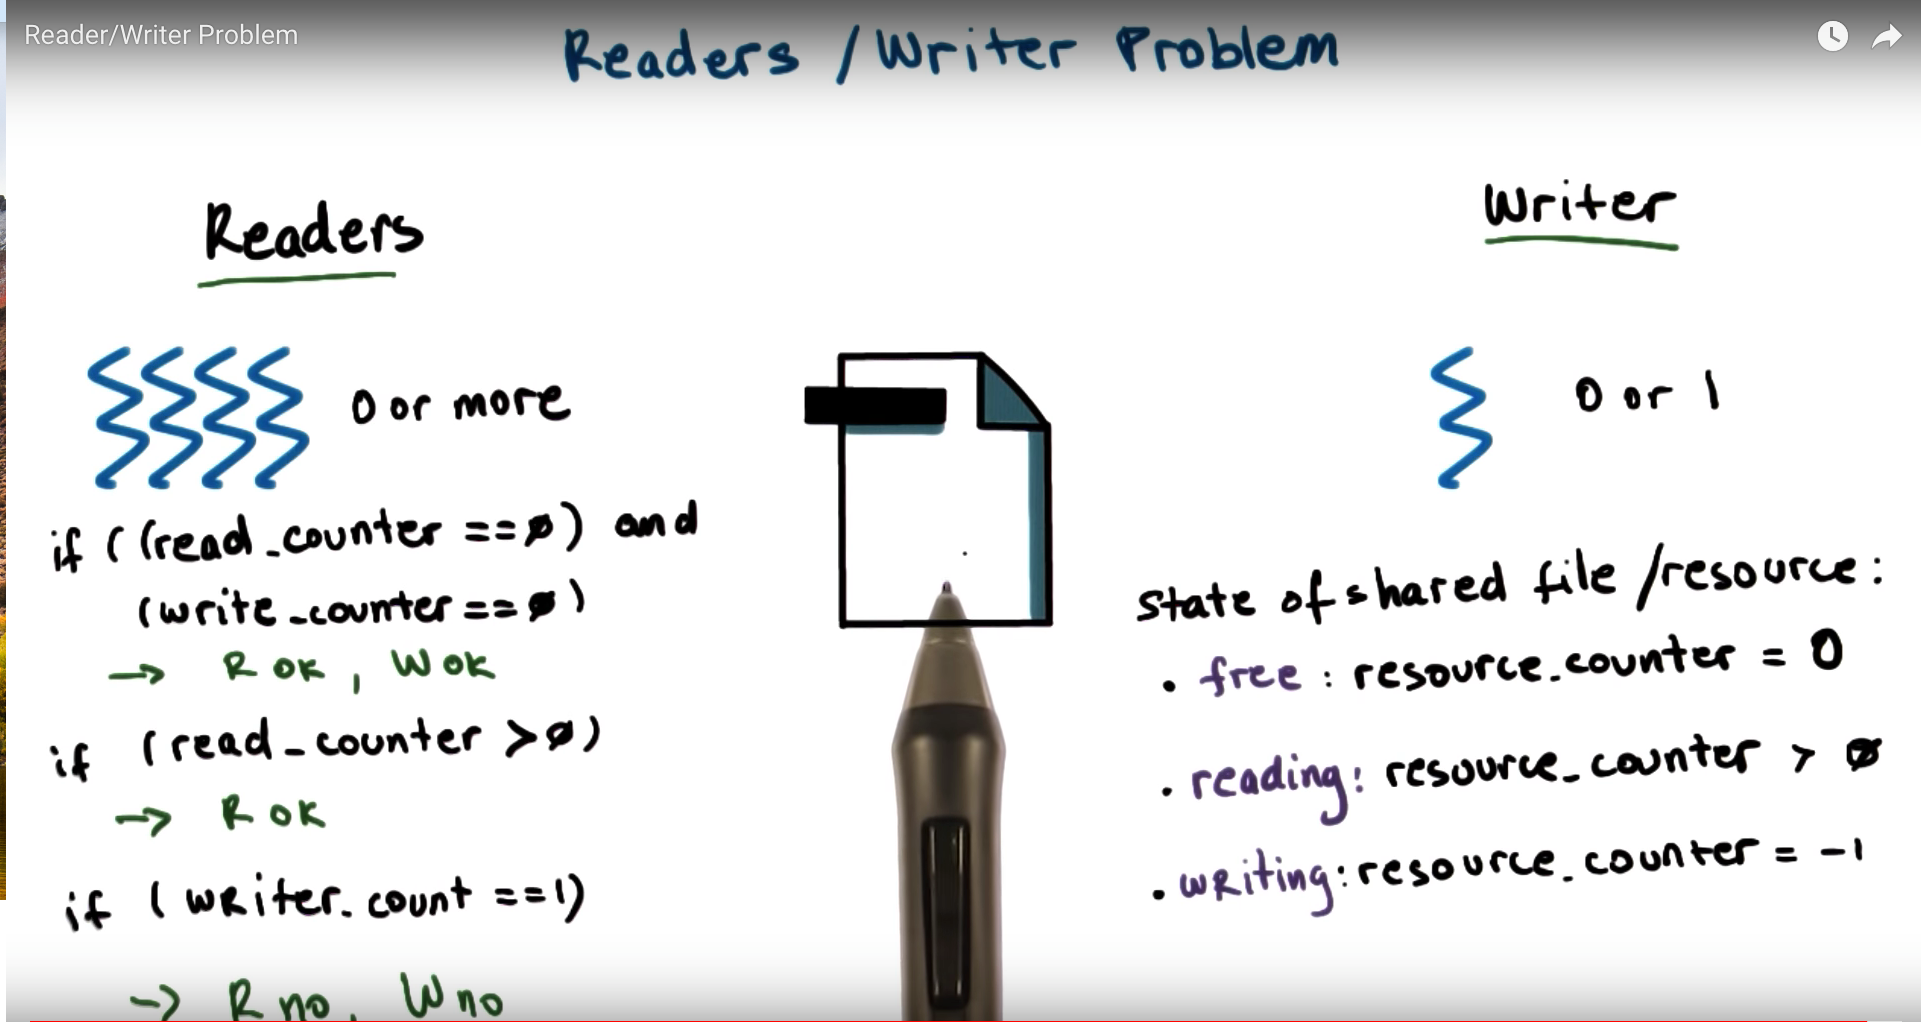 Reader/Writer Problem
Readers / Writer Problem
Readers
0 or more
if ((read_counter == 0) and
(write_counter == 0)
→ R OK, W OK
if (read_counter > 0)
→ R OK
if (writer_count == 1)
→ R no, W no
Writer
0 or 1
state of shared file / resource:
• free : resource_counter = 0
• reading: resource_counter > 0
• writing: resource_counter = -1